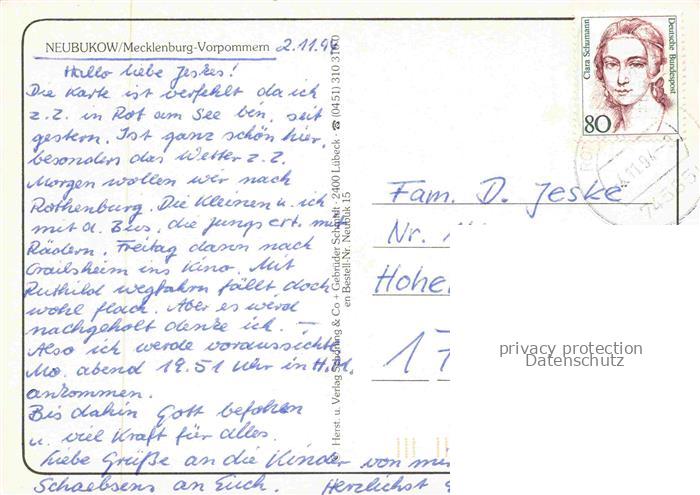 NEUBUKOW/Mecklenburg-Vorpommern 2.11.94
Hallo liebe Jeskes!
Die Karte ist verfehlt da ich
z.Z. in Rot am See bin, seit
gestern. Ist ganz schön hier,
besonders das Wetter z.Z.
Morgen wollen wir nach
Rothenburg. Die Kleinen u. ich
mit d. Bus, die Jungs evt. mit
Rädern. Freitag dann nach
Crailsheim ins Kino. Mit
Ruthild wegfahrn fällt doch
wohl flach. Aber es wird
nachgeholt denke ich. –
Also ich werde voraussichtl.
Mo. abend 19.51 Uhr in
ankommen.
Bis dahin Gott befohlen
u. viel Kraft für alles.
Liebe Grüße an die Kinder von
Schaebsens an Euch. Herzlichst
Herst. u. Verlag Schöning & Co + Gebrüder Schmidt · 2400 Lübeck ☎ (0451) 310 31
en Bestell-Nr. Neubuk 15
Clara Schumann
Deutsche Bundespost
80
Fam. D. Jeske
Nr.
Hohe
17
privacy protection
Datenschutz